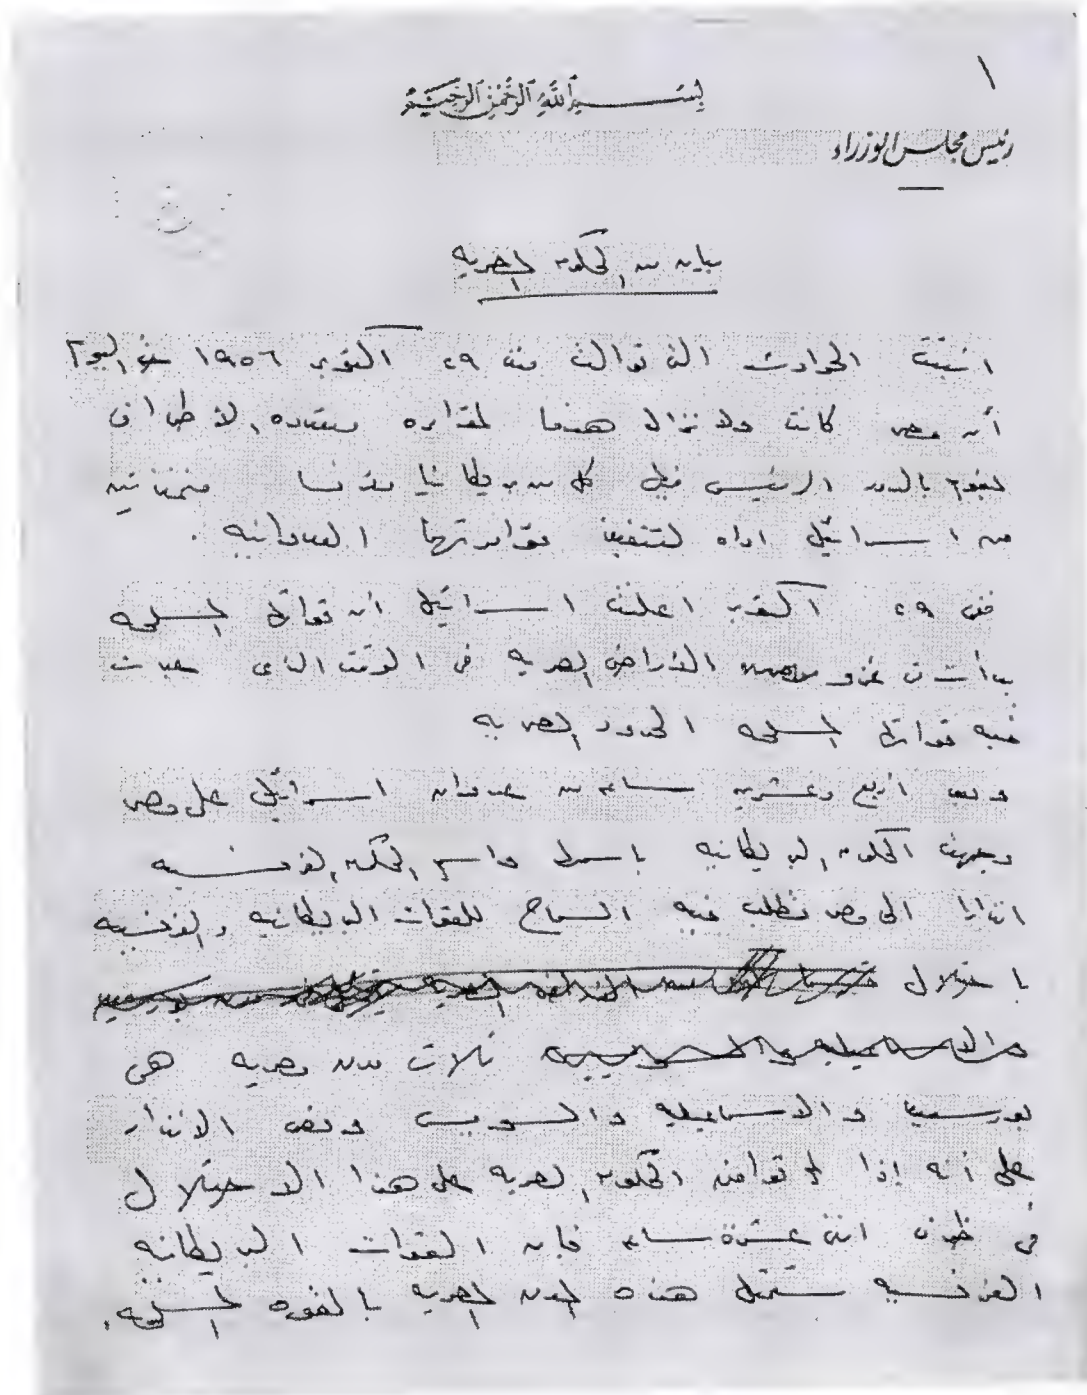 ١
بسم الله الرحمن الرحيم
رئيس مجلس الوزراء
بيان من الحكومة المصرية
اثبتت الحوادث التى توالت منذ ٢٩ أكتوبر ١٩٥٦ حتى اليوم
أن مصر كانت ولا تزال هدفا لمؤامره متعدده الأطراف
تقوم بالدور الرئيسى فيها كل من بريطانيا وفرنسا متخذتين
من اسرائيل اداه لتنفيذ مؤامرتهما العدوانيه .
ففى ٢٩ اكتوبر اعلنت اسرائيل أن قواتها المسلحه
بدأت فى غزو الأراضى المصريه فى الوقت الذى عبرت
فيه قواتها المسلحه الحدود المصريه
وبعد أربع وعشرين ساعه من عدوان اسرائيل على مصر
وجهت الحكومه البريطانيه باسمها واسم الحكومه الفرنسيه
انذارا الى مصر تطلب فيه السماح للقوات البريطانيه والفرنسيه
باحتلال
ثلاث مدن مصريه هى
بورسعيد والاسماعيليه والسويس ونص الانذار
على أنه إذا لم توافق الحكومه المصريه على هذا الاحتلال
فى ظرف اثنى عشرة ساعه فإن القوات البريطانيه
الفرنسيه ستحتل هذه المدن المصريه بالقوه المسلحه.